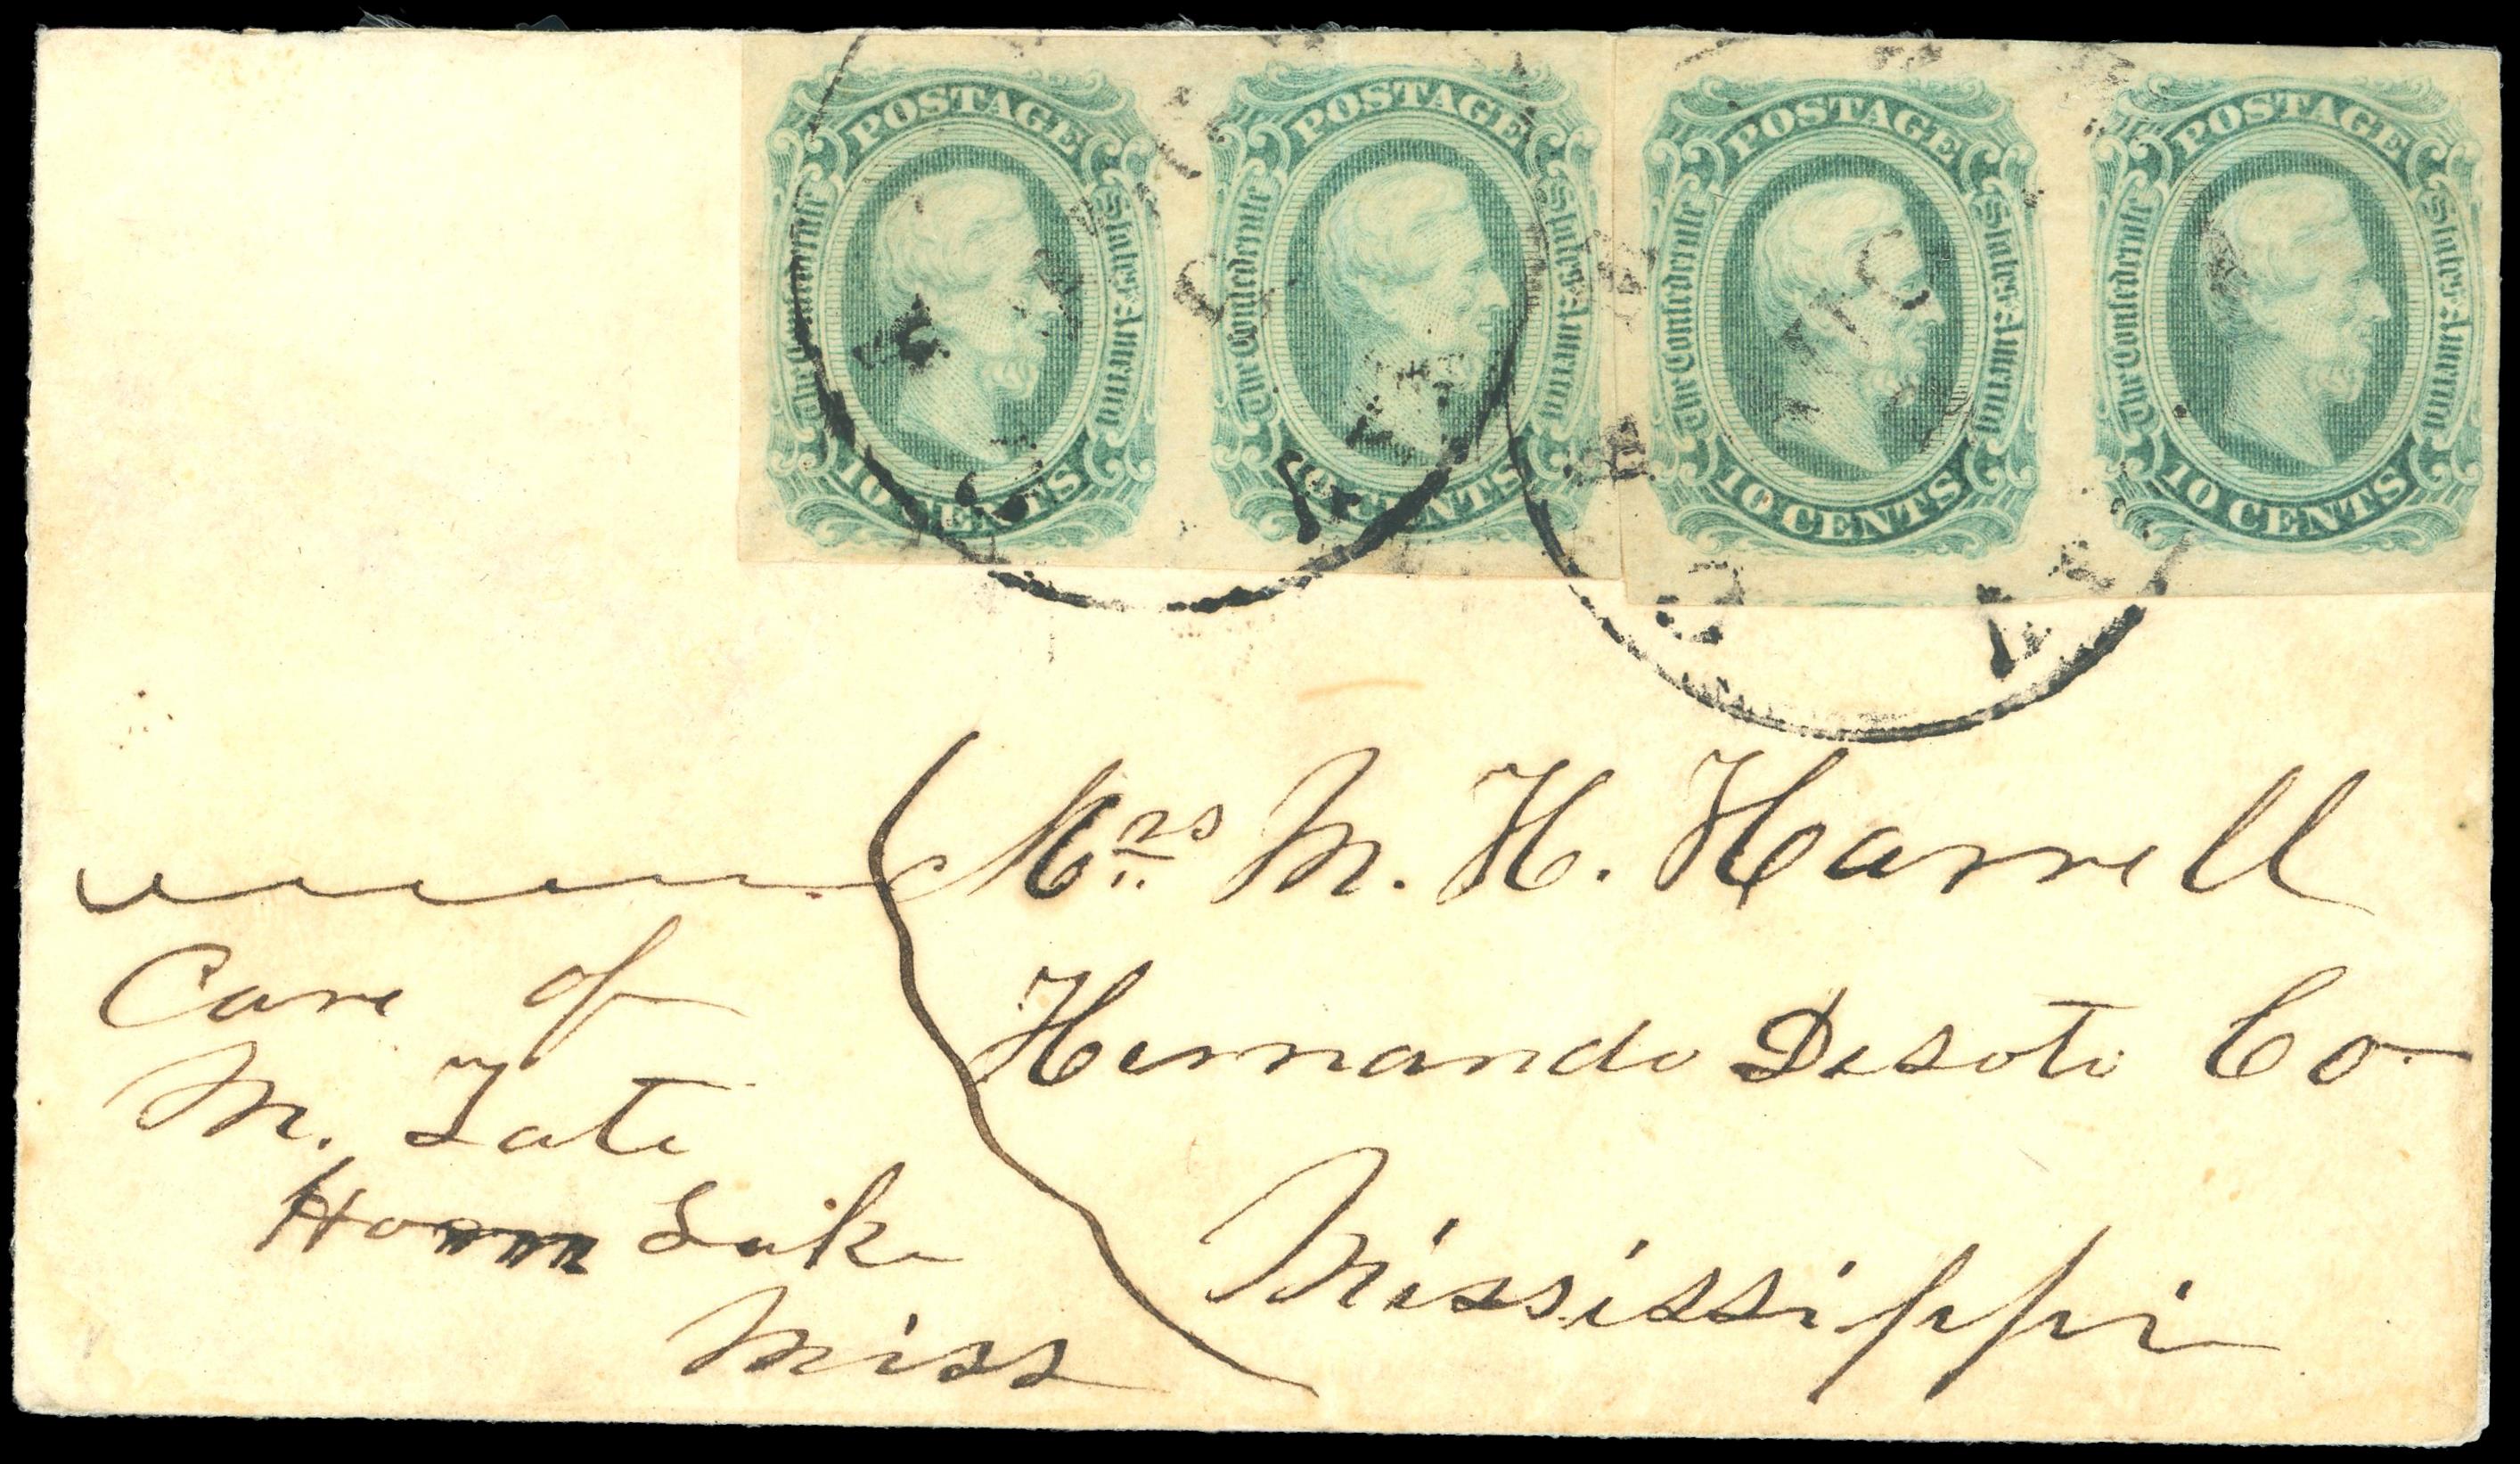 POSTAGE
The Confederate States America
10 CENTS
POSTAGE
The Confederate States America
10 CENTS
POSTAGE
The Confederate States America
10 CENTS
POSTAGE
The Confederate States America
10 CENTS
Mrs M. H. Harrell
Hernando Desoto Co.
Mississippi
Care of
M. Tate
Horn Lake
Miss